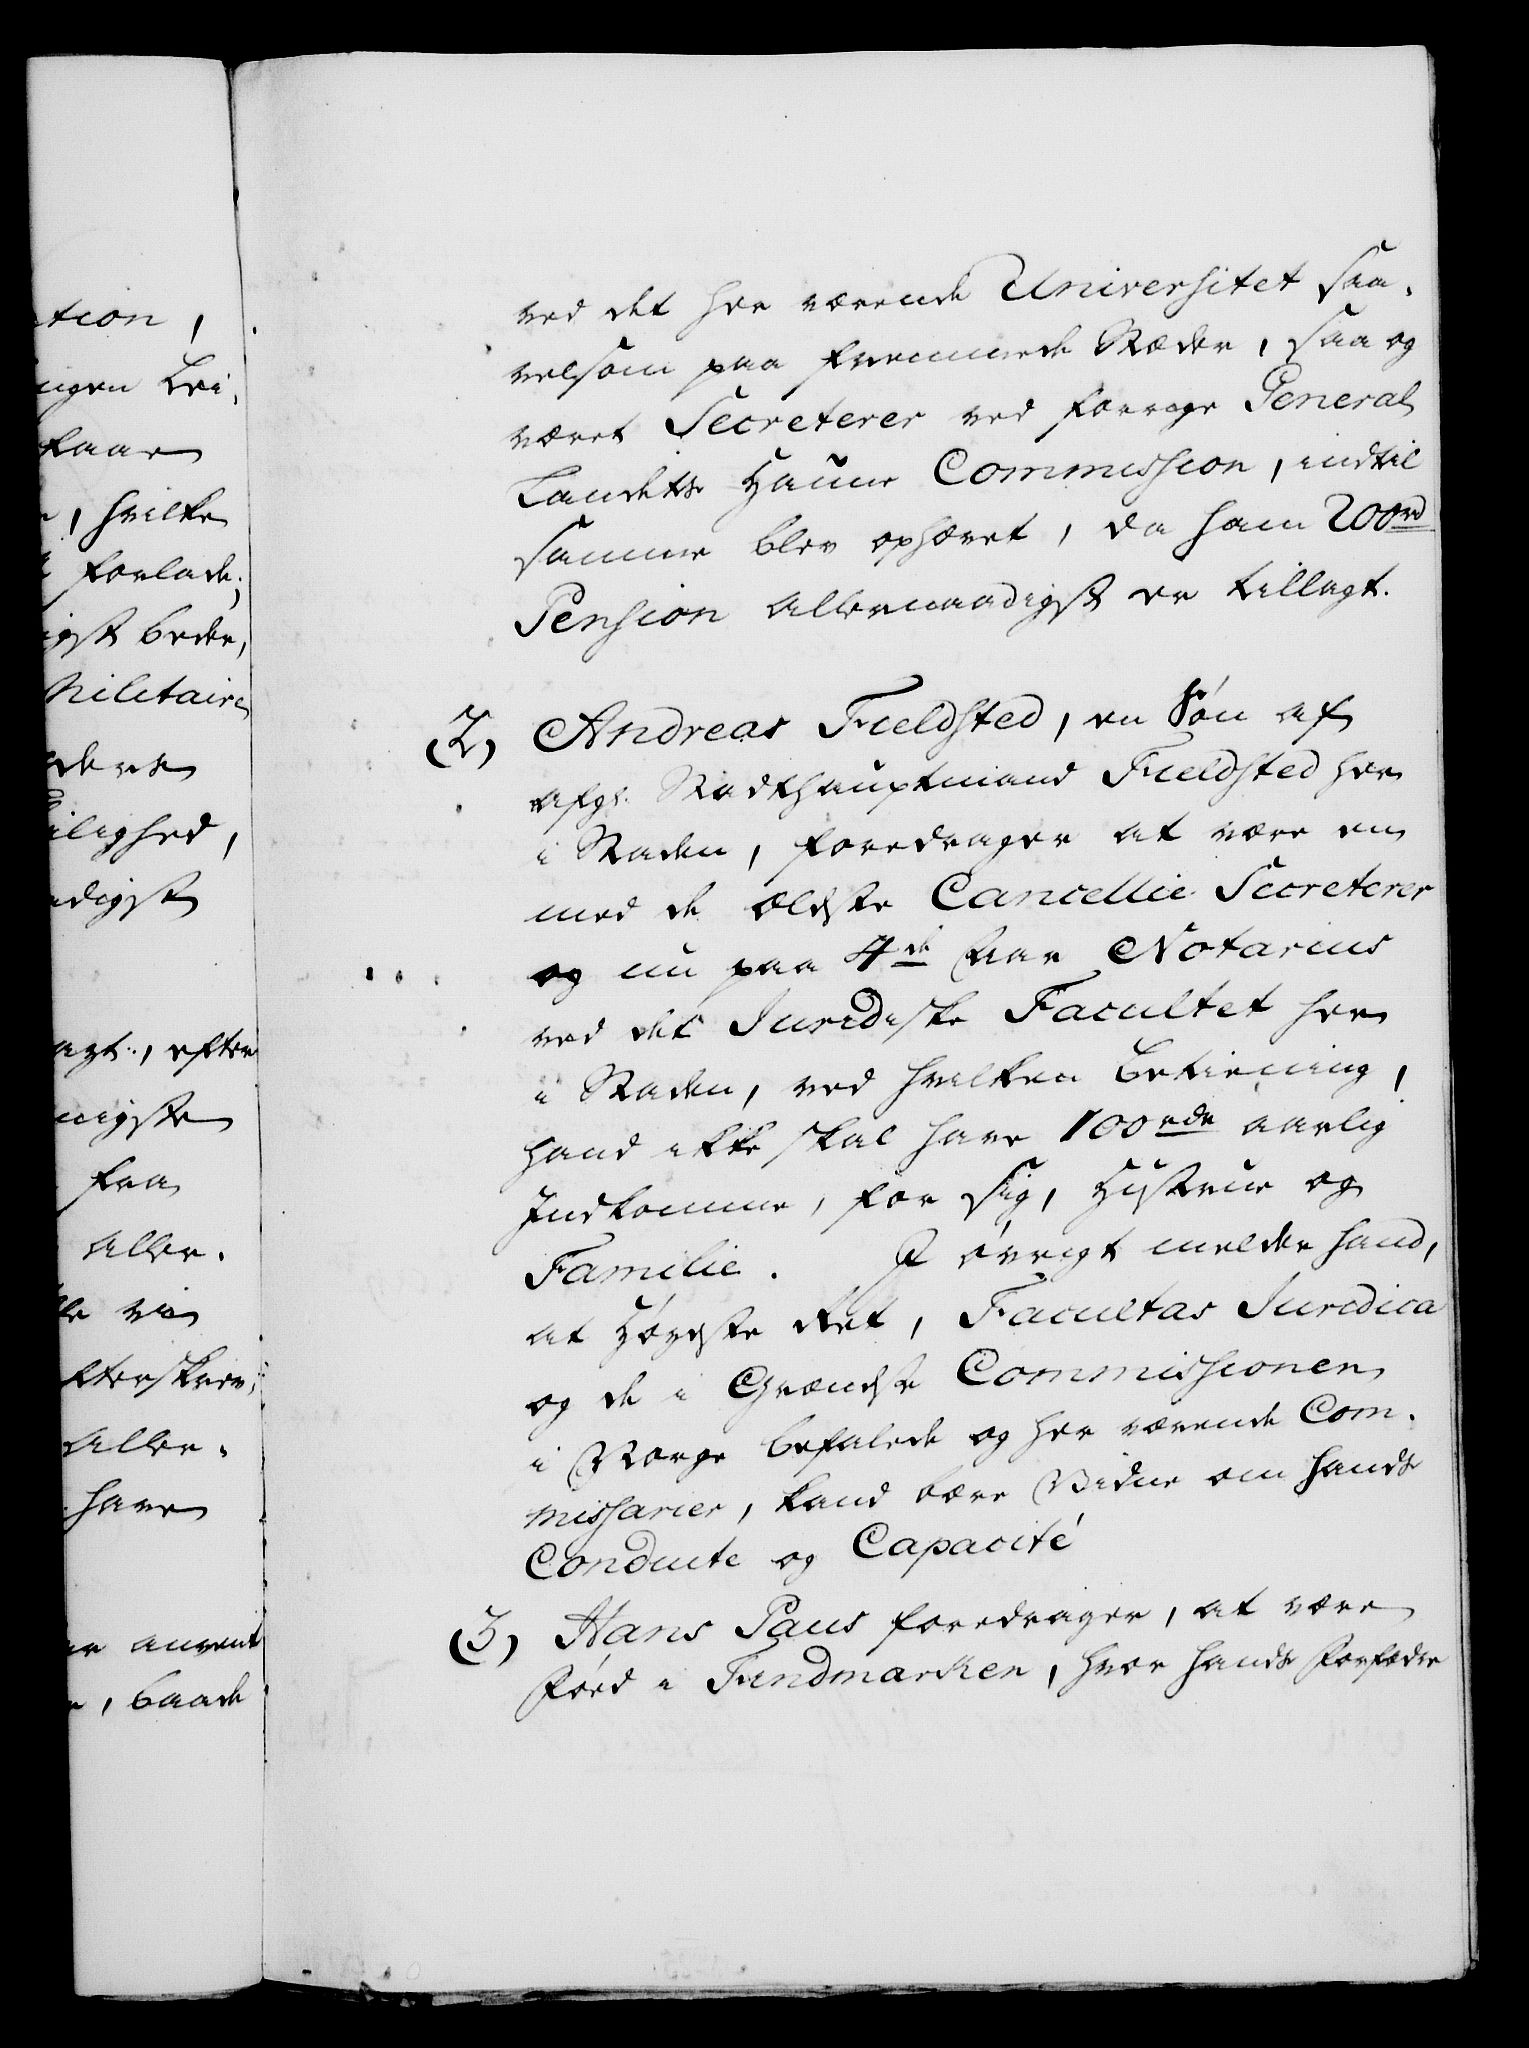 tion,
ingen Lei-
faar
, hvilke
forlade;
igst beder,
Militaire
deres
ilighed,
adigst
agt., efter
nigste
fra
Aller-
vi
efterskrev,
Aller-
have
er anvent
, baade
ved det her værende Universitet saa-
velsom paa fremmede Stæder, saa og
været Secreterer ved forrige General
Landets Huus Commission, indtil
samme blev ophævet, da ham 200rd
Pension allernaadigst er tillagt.
(2) Andreas Fieldsted, en Søn af
afg: Stadthauptmand Fieldsted her
i Staden, foredrager at være en
med de ældste Cancellie Secreterer
og nu paa 4de Aar Notarius
ved det Juridiske Facultet her
i Staden, ved hvilken Betiening,
hand ikke skal have 100rdr aarlig
Indkomme, for sig, Hustrue og
Familie. I øvrigt melder hand,
at Høyeste Ret, Facultas Juridica
og de i Grændse Commissionen
i Norge befalede og her værende Com-
missarier, kand bære Vidne om hands
Conduite og Capacité
(3) Hans Paus foredrager, at være
fød i Findmarken, hvor hands Forfædre